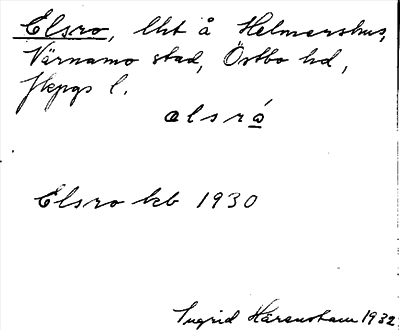 Elsro, lht å Helmershus,
Värnamo stad, Östbo hd,
Jkpgs l.
elsró
Elsro kb 1930
Ingrid 1932